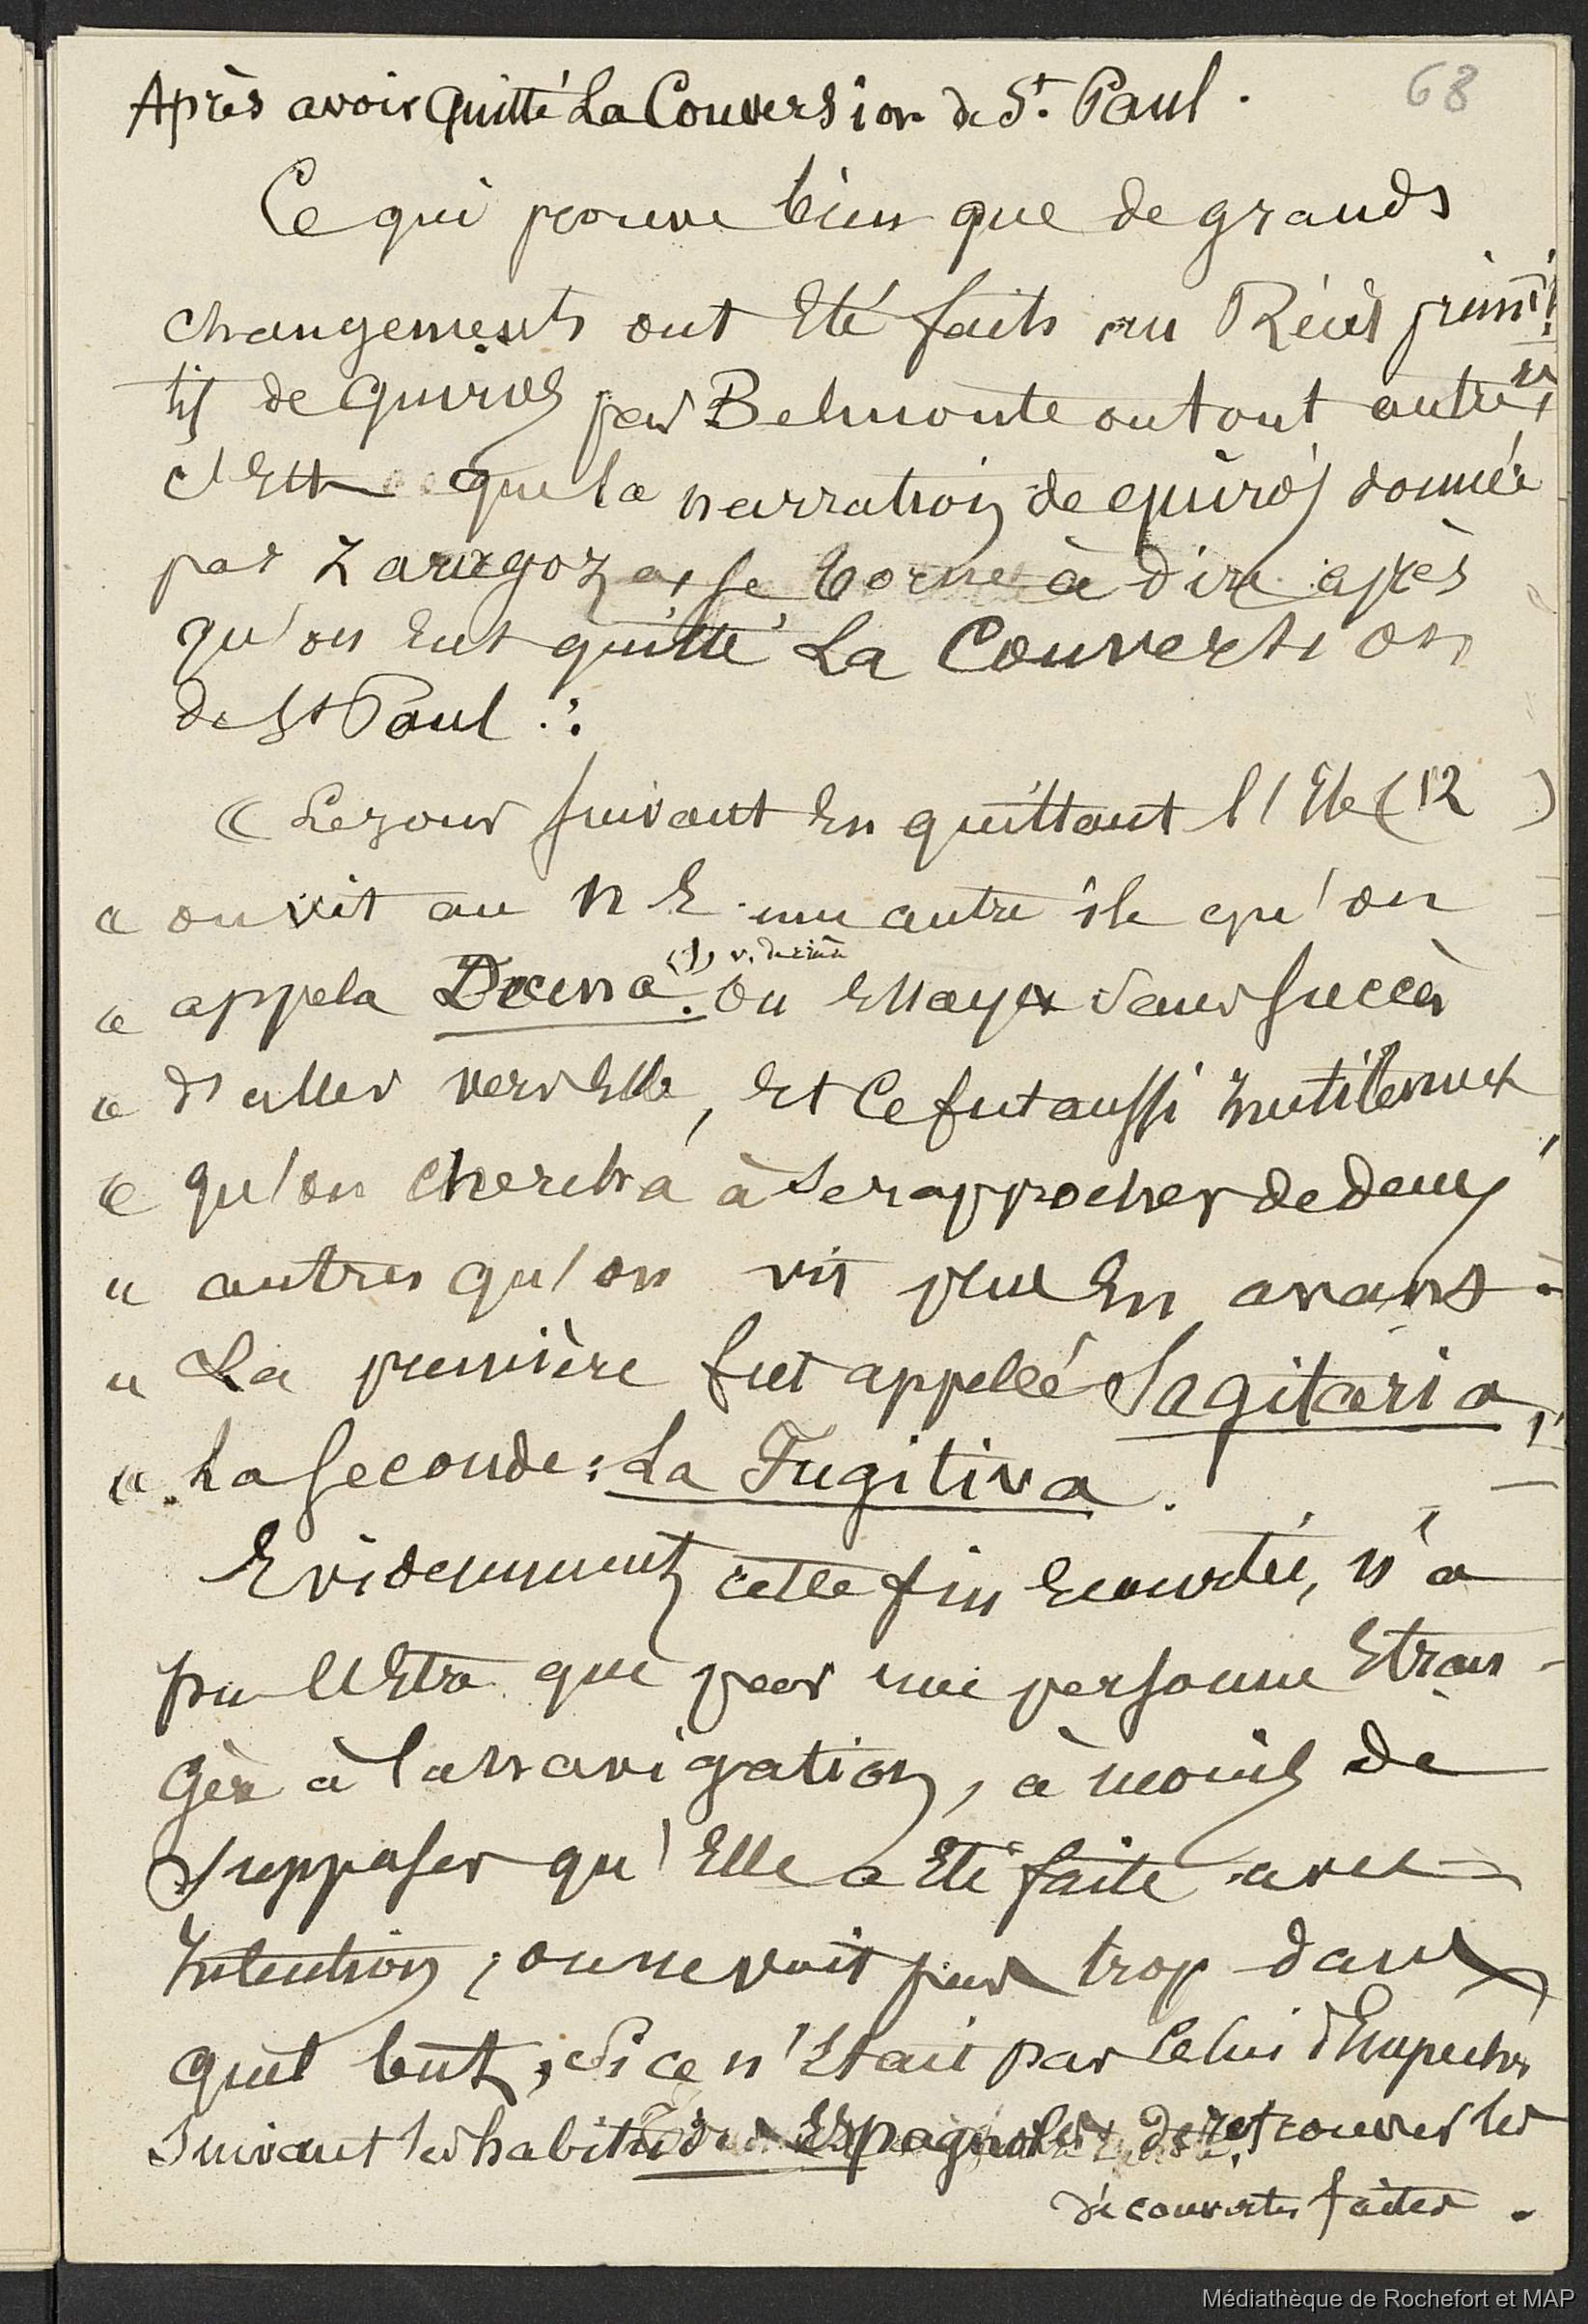 68
Après avoir quitté La Conversion de St. Paul.
Ce qui prouve bien que de grands
changements ont Eté faits au Récit primi
tif de Quiros par Belmonte ou tout autre,
c'Est que la narration de Quiros donnée
par Zaragoza, se borne à dire après
qu'on Eut quitté La Conversion
de St Paul :
« Le jour suivant En quittant l'Ile (12 )
« on vit au N E. une autre île qu'on
« appela Decena. (1) v. derrière On Essaya sans succès
« d'aller vers Elle, Et ce fut aussi Inutilement
« qu'on chercha à se rapprocher de deux
« autres qu'on vit plus En avant.
« La première fut appellé Sagitaria,
« La seconde : La Fugitiva.
Evidemment cette fin Ecourtée, n'a
pu l'Etre que par une personne Etran-
gère à la navigation, à moins de
supposer qu'Elle a Eté faite avec
Intention ; on ne voit pas trop dans
quel but, si ce n'Etait pas celui d'Empecher
suivant les habitudes Espagnoles de retrouver les
découvertes faites.
Médiathèque de Rochefort et MAP